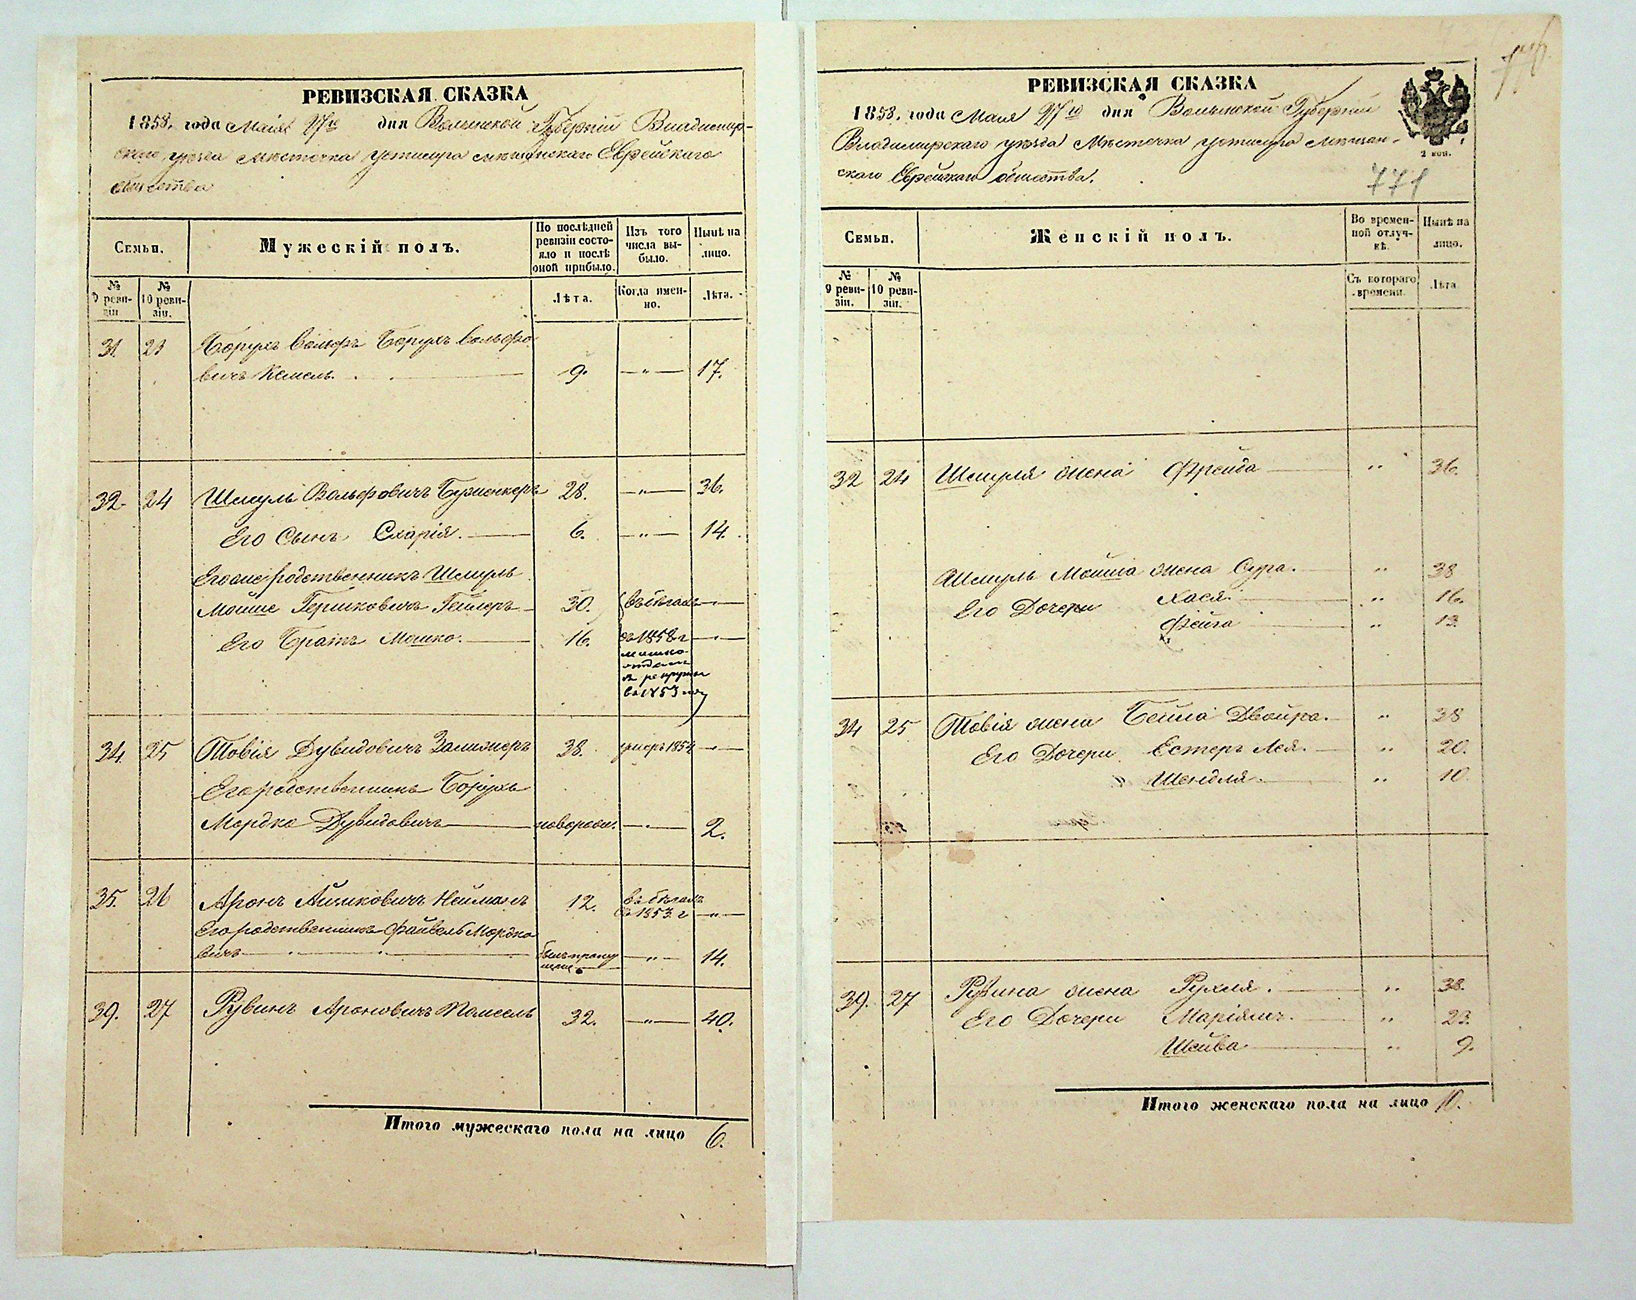 РЕВИЗСКАЯ СКАЗКА
1858. года Маія 27го дня Волынской Губерніи Владимир-
скаго уѣзда мѣстечка Устилуга мѣщанскаго Еврейскаго
общества
Семьи. Мужескій полъ. По послѣдней ревизіи состояло и послѣ оной прибыло. Изъ того числа выбыло. Нынѣ на лицо.
№ 9 ревизіи № 10 ревизіи. Лѣта. Когда именно. Лѣта.
31 23 Борухъ Вольфъ Борухъ Вольфо
вичъ 9. —"— 17.
32. 24 Шмуль Вольфовичъ 28. —"— 36.
Его Сынъ Схарія. 6. —"— 14.
Его же родственникъ Шмуль
Мойше Гершковичъ Гейлеръ 30. въ бѣгахъ —"—
Его Братъ Мошко. 16. съ 1858 г —"—
мошко
отданъ
въ рекруты
въ 1853 году
34. 25 Товія Дувидовичъ 38. умеръ 1854 —"—
Его родственникъ Борухъ
Мордко Дувидовичъ новорож. —"— 2.
35. 26 Аронъ Нейманъ 12. въ бѣгахъ
съ 1853. г —"—
Его родственникъ Файвель Мордко
вичъ былъ пропущенъ —"— 14.
39. 27 Рувинъ Ароновичъ 32. —"— 40.
Итого мужескаго пола на лицо 6.
РЕВИЗСКАЯ СКАЗКА
1858. года Маія 27го дня Волынской Губерніи
Владимирскаго уѣзда Мѣстечка Устилуга мѣщан-
скаго Еврейскаго общества.
2 коп.
771
Семьи. Женскій полъ. Во временной отлучкѣ. Нынѣ на лицо.
№ 9 ревизіи. № 10 ревизіи. Съ котораго времени. Лѣта
32 24 Шмуля жена Фрейда " 36.
Шмуль Мойша жена Сура. " 38
Его Дочери Хася. " 16.
Фейга " 13.
34 25 Товія жена Бейла Двойра. " 38
Его Дочери Естеръ Лея. " 20.
" Шендля. " 10
39. 27 Рувина жена Рухля. " 38.
Его Дочери Маріямъ. " 23.
Шейва " 9.
Итого женскаго пола на лицо 10.